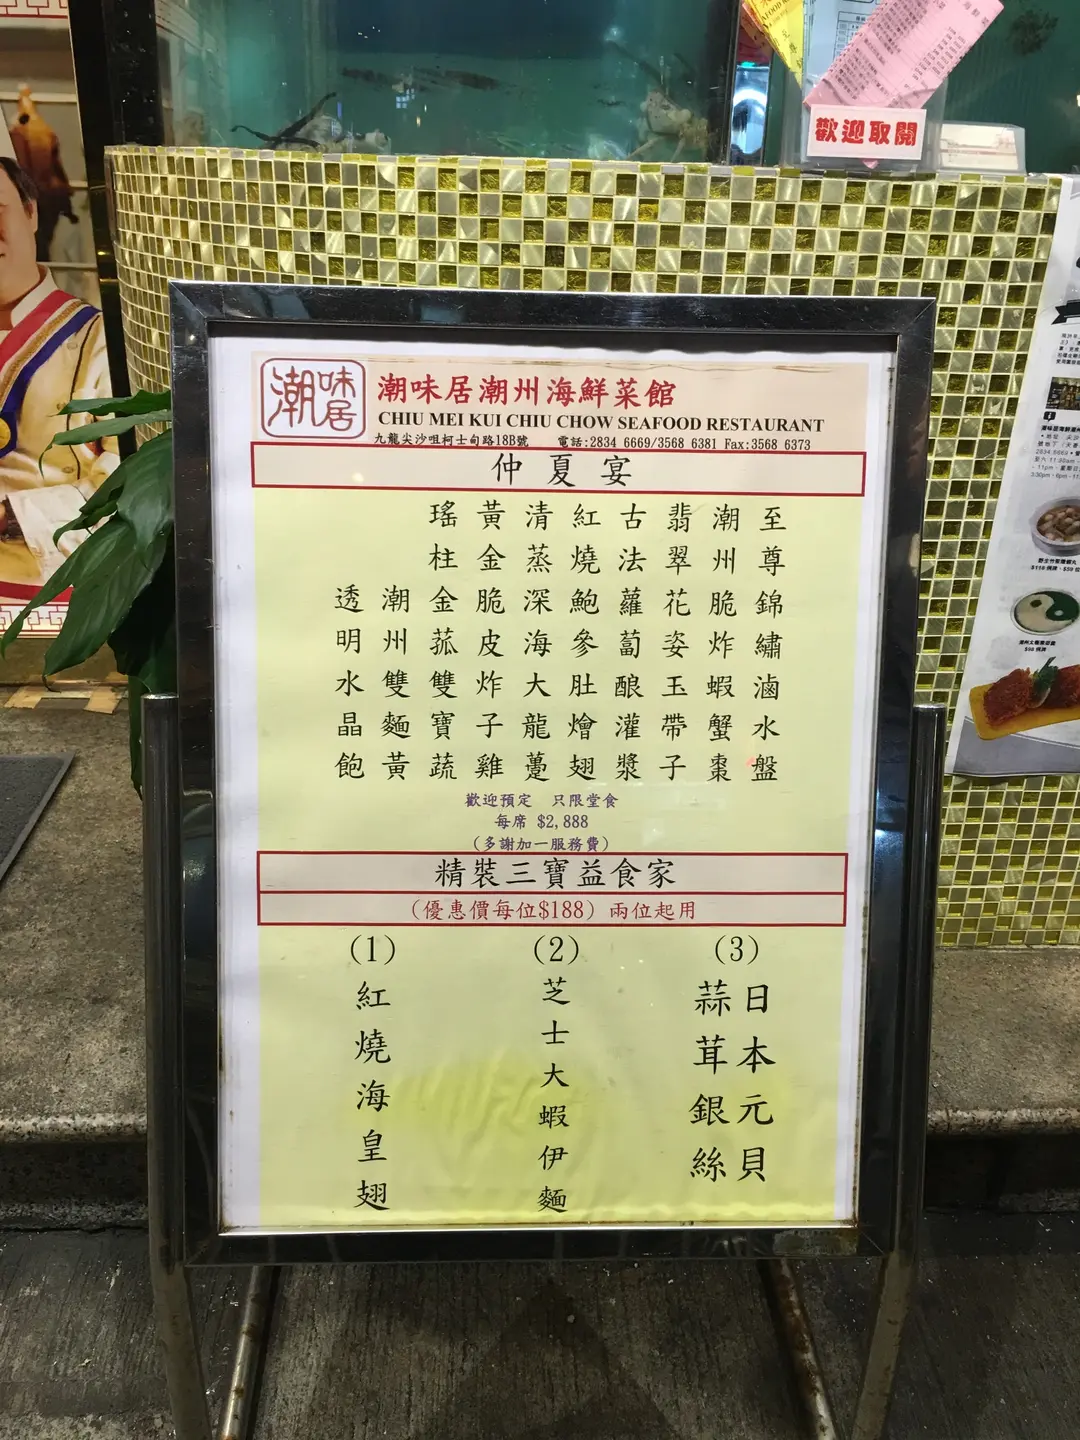 歡迎取閱
潮味居
潮味居潮州海鮮菜館
CHIU MEI KUI CHIU CHOW SEAFOOD RESTAURANT
九龍尖沙咀柯士甸路18B號 電話:2834 6669/3568 6381 Fax:3568 6373
仲夏宴
至尊錦繡滷水盤
潮州脆炸蝦蟹棗
翡翠花姿玉帶子
古法蘿蔔酿灌漿
紅燒鮑參肚燴翅
清蒸深海大龍躉
黃金脆皮炸子雞
瑤柱金菰雙寶蔬
潮州雙麵黃
透明水晶飽
歡迎預定 只限堂食
每席 $2,888
(多謝加一服務費)
精裝三寶益食家
(優惠價每位$188) 兩位起用
(1)
紅燒海皇翅
(2)
芝士大蝦伊麵
(3)
日本元貝
蒜茸銀絲